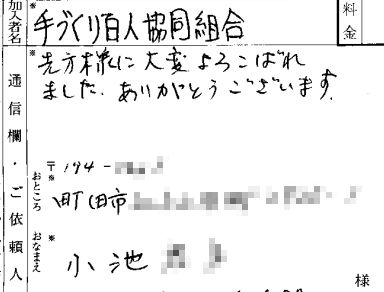 加入者名
手づくり百人協同組合
料金
通信欄・ご依頼人
※
先方様に大変よろこばれ
ました。ありがとうございます。
〒194-
おところ※
町田市
おなまえ※
小池
様